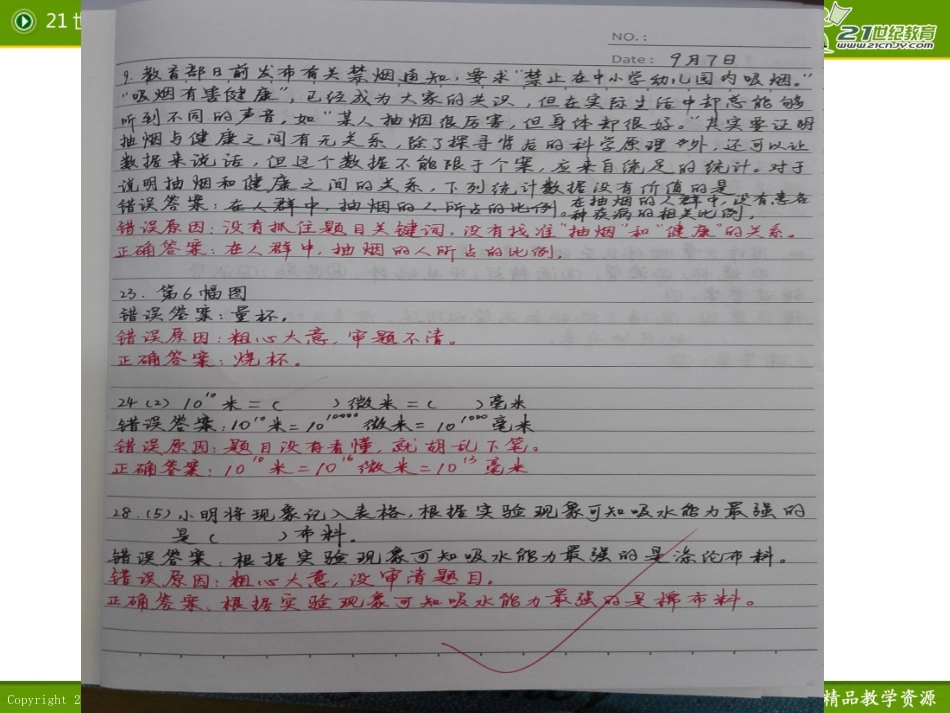 21世纪教育
WWW.21CNJY.COM
NO.:
Date: 9月7日
9. 教育部日前发布有关禁烟通知,要求"禁止在中小学幼儿园内吸烟。"
"吸烟有害健康",已经成为大家的共识,但在实际生活中却总能够
听到不同的声音,如"某人抽烟很厉害,但身体却很好。"其实要证明
抽烟与健康之间有无关系,除了探寻背后的科学原理外,还可以让
数据来说话,但这个数据不能限于个案,应来自统足的统计。对于
说明抽烟和健康之间的关系,下列统计数据没有价值的是
错误答案:在人群中,抽烟的人所占的比例。在抽烟的人群中,没有患各
种疾病的相关比例,
错误原因:没有抓住题目关键词,没有找准"抽烟"和"健康"的关系。
正确答案:在人群中,抽烟的人所占的比例,
23. 第6幅图
错误答案:量杯,
错误原因:粗心大意,审题不清。
正确答案:烧杯。
24(2) 10¹⁰米=( )微米=( )毫米
错误答案:10¹⁰米=10¹⁰⁰⁰⁰微米=10¹⁰⁰⁰毫米
错误原因:题目没有看懂,就胡乱下笔。
正确答案:10¹⁰米=10¹⁶微米=10¹³毫米
28.(5)小明将现象记入表格,根据实验现象可知吸水能力最强的
是( )布料。
错误答案:根据实验现象可知吸水能力最强的是涤纶布料。
错误原因:粗心大意,没审清题目。
正确答案:根据实验现象可知吸水能力最强的是棉布料。
Copyright 2
精品教学资源